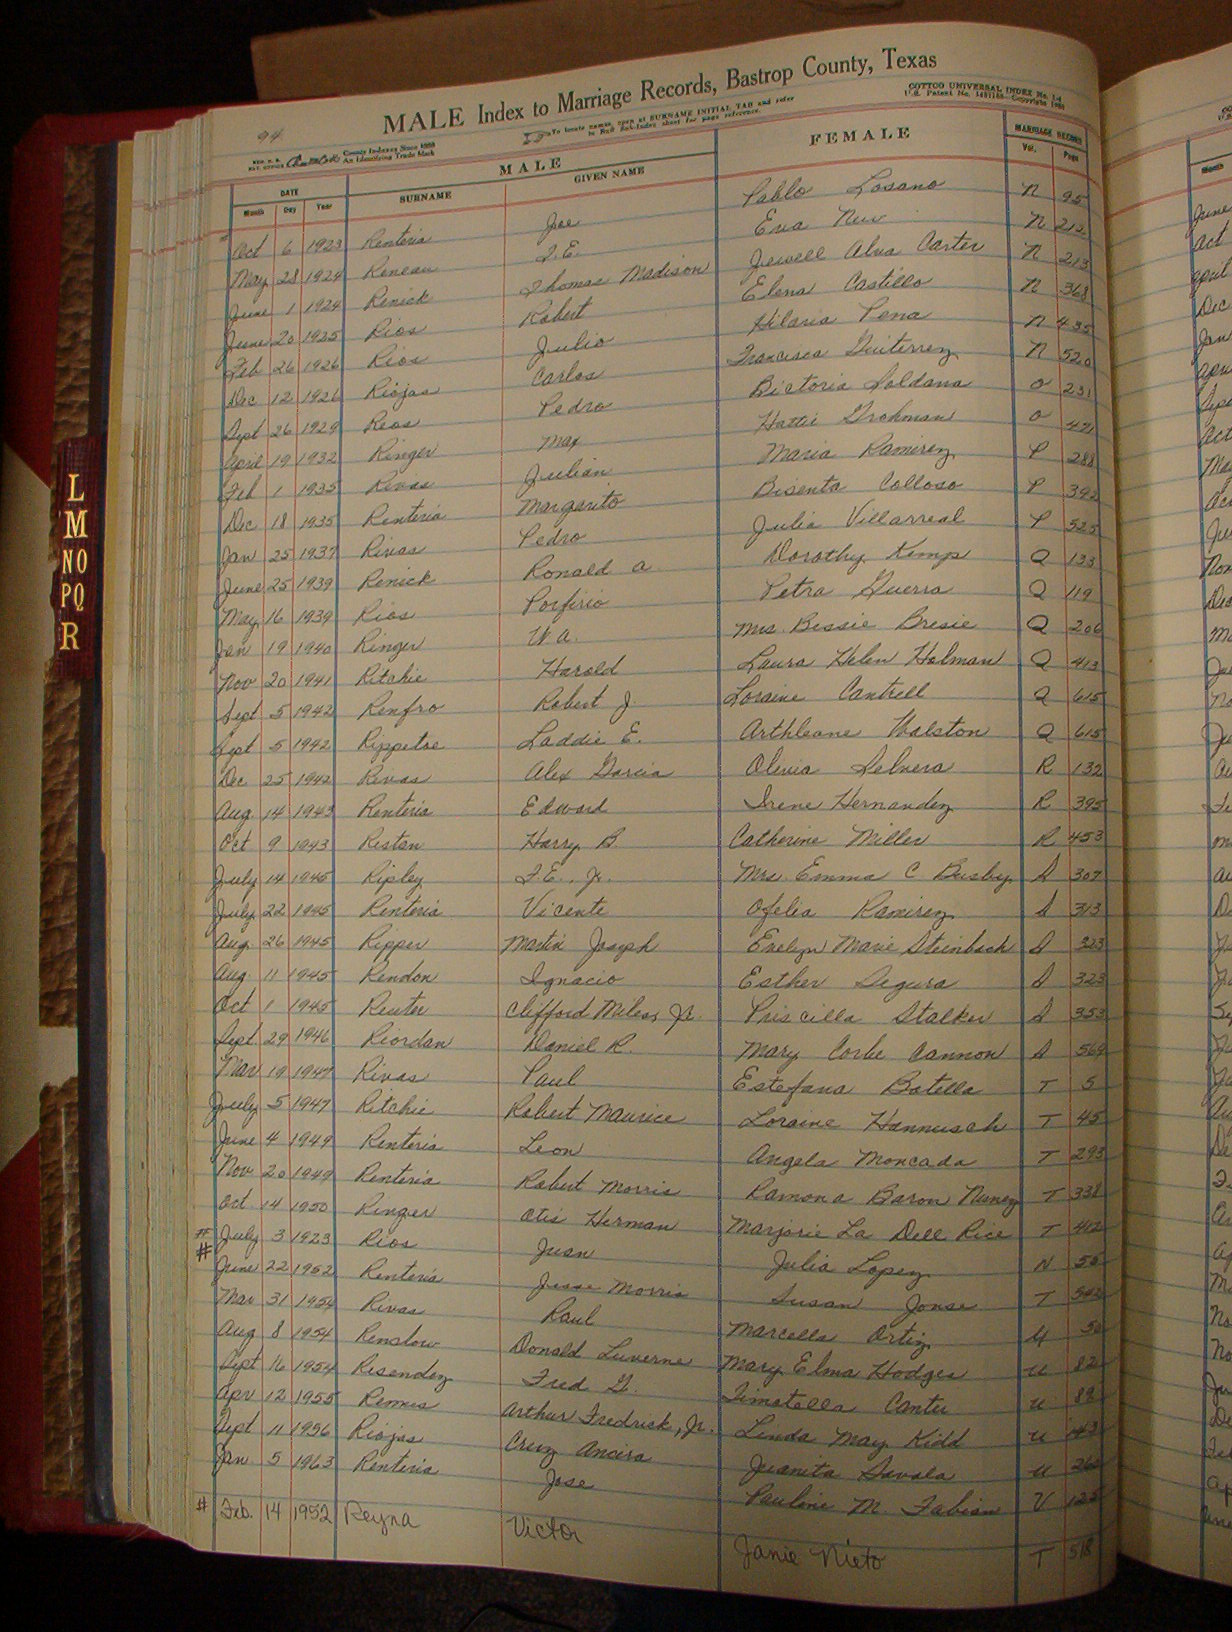 94
MALE Index to Marriage Records, Bastrop County, Texas
COTTCO UNIVERSAL INDEX No. 14
U.S. Patent No. Copyright
To locate names, open at SURNAME INITIAL TAB and refer
to Sub-Index sheet for page reference.
County Indexes Since 1888
An Identifying Trade Mark
MALE FEMALE MARRIAGE RECORD
DATE SURNAME GIVEN NAME Vol. Page
Month Day Year
Oct 6 1923 Renteria Joe Pablo Losano N 95
May 28 1924 Reneau I.E. Eva New N 212
June 1 1924 Renick Thomas Madison Jewell Alva Carter N 213
June 20 1925 Rios Robert Elena Castillo N 368
Feb 26 1926 Rios Julio Hilaria Pena N 435
Dec 12 1926 Riojas Carlos Francisca Guiterrez N 520
Sept 26 1929 Rios Pedro Bictoria Saldana O 231
April 19 1932 Ringer Max Hattie Grohman O 471
Feb 1 1935 Rivas Julian Maria Ramirez P 288
Dec 18 1935 Renteria Margarito Bisenta Colloso P 392
Jan 25 1937 Rivas Pedro Julia Villarreal P 525
June 25 1939 Renick Ronald A Dorothy Kemp Q 133
May 16 1939 Rios Porfirio Petra Guerra Q 119
Jan 19 1940 Ringer W A. Mrs. Bessie Bresie Q 206
Nov 20 1941 Ritchie Harold Laura Helen Holman Q 413
Sept 5 1942 Renfro Robert J. Loraine Cantrell Q 615
Sept 5 1942 Rippetoe Laddie E. Arthleane Walston Q 615
Dec 25 1942 Rivas Alex Garcia Olivia R 132
Aug. 14 1943 Renteria Edward Irene Hernandez R 395
Oct 9 1943 Riston Harry B. Catherine Miller R 453
July 14 1945 Ripley I.E., Jr. Mrs. Emma C Busby S 307
July 22 1945 Renteria Vicente Ofelia Ramirez S 313
Aug. 26 1945 Ripper Martin Joseph Evelyn Marie Steinbach S 323
Aug. 11 1945 Rendon Ignacio Esther Segura S 323
Oct 1 1945 Reuter Clifford Miles, Jr. Priscilla Stalker S 353
Sept. 29 1946 Riordan Daniel R. Mary Corbe Cannon S 569
Mar 19 1947 Rivas Paul Estefana Botello T 5
July 5 1947 Ritchie Robert Maurice Loraine Hannusch T 45
June 4 1949 Renteria Leon Angela Moncada T 293
Nov 20 1949 Renteria Robert Morris Ramona Baron Nunez T 338
Oct 14 1950 Ringer Otis Herman Marjorie La Dell Rice T 412
# July 3 1923 Rios Juan Julia Lopez N 55
# June 22 1952 Renteria Jesse Morris Susan Jonse T 542
Mar 31 1954 Rivas Raul Marcella Ortiz U 50
Aug 8 1954 Renslow Donald Luverne Mary Elma Hodges U 82
Sept 16 1954 Risendez Fred G. Timotella Cantu U 89
Apr 12 1955 Remus Arthur Fredrick, Jr. Linda May Kidd U 143
Sept 11 1956 Riojas Cruz Ancira Juanita Savala U 262
Jan 5 1963 Renteria Jose Pauline M. Fabian V 125
# Feb. 14 1952 Reyna Victor Janie Nieto T 518
L
M
NO
PQ
R